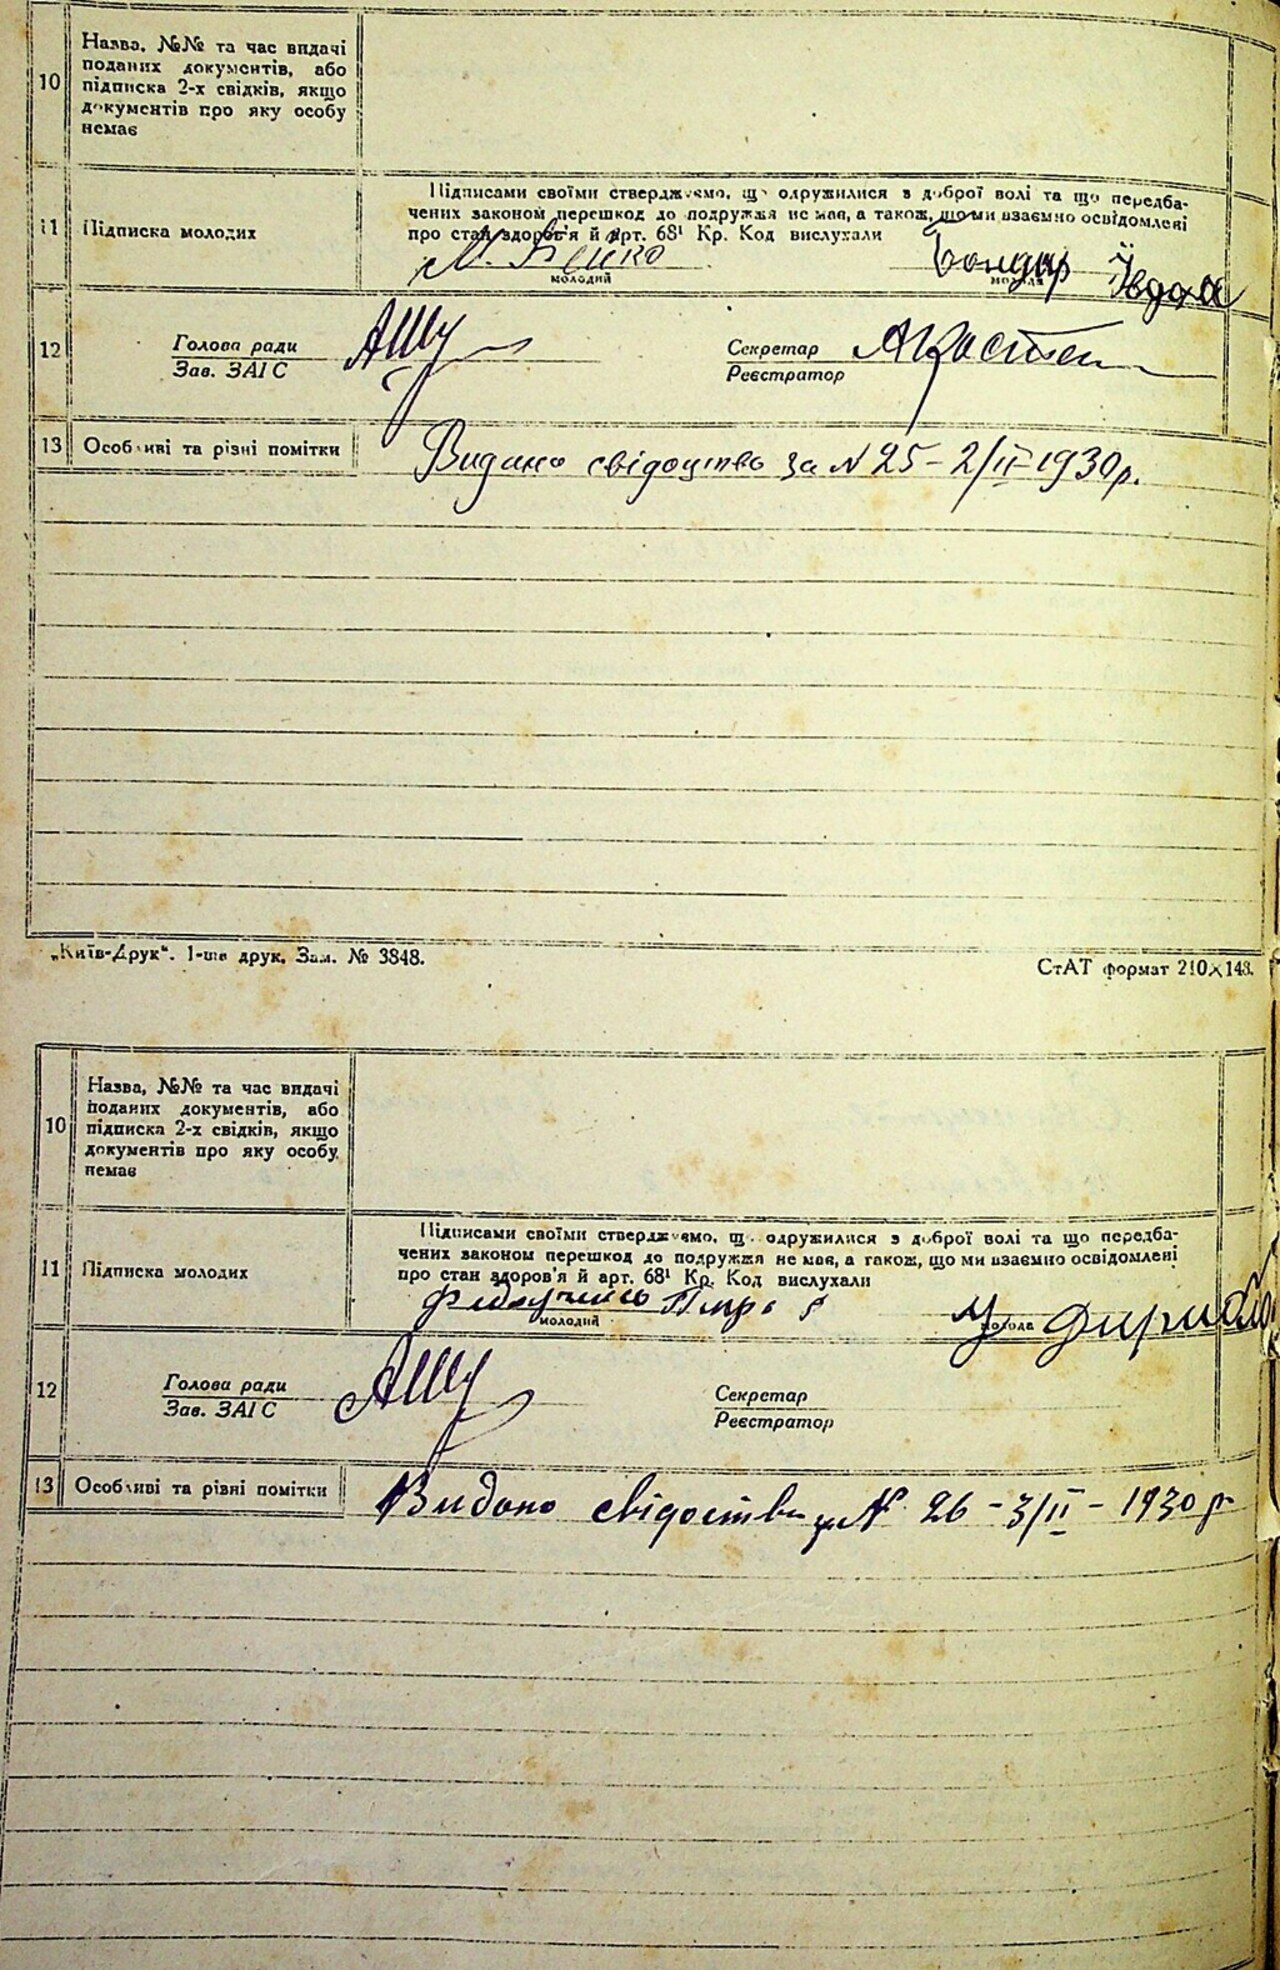 10
Назва, №№ та час видачі
поданих документів, або
підписка 2-х свідків, якщо
документів про яку особу
немає
11
Підписка молодих
Підписами своїми стверджуємо, що одружилися з доброї волі та що передба-
чених законом перешкод до подружжя не має, а також, що ми взаємно освідомлені
про стан здоров'я й арт. 68¹ Кр. Код вислухали
молодий
Бондар Ївдоха
молода
12
Голова ради
Зав. ЗАГС
Секретар
Реєстратор
13
Особливі та різні помітки
Видано свідоцтво за N 25 - 2/II-1930р.
„Київ-Друк“. 1-ша друк. Зам. № 3848.
СтАТ формат 210×148.
10
Назва, №№ та час видачі
поданих документів, або
підписка 2-х свідків, якщо
документів про яку особу
немає
11
Підписка молодих
Підписами своїми стверджуємо, що одружилися з доброї волі та що передба-
чених законом перешкод до подружжя не має, а також, що ми взаємно освідомлені
про стан здоров'я й арт. 68¹ Кр. Код вислухали
молодий
молода
12
Голова ради
Зав. ЗАГС
Секретар
Реєстратор
13
Особливі та різні помітки
Видано свідоство N 26 - 3/II - 1930 р